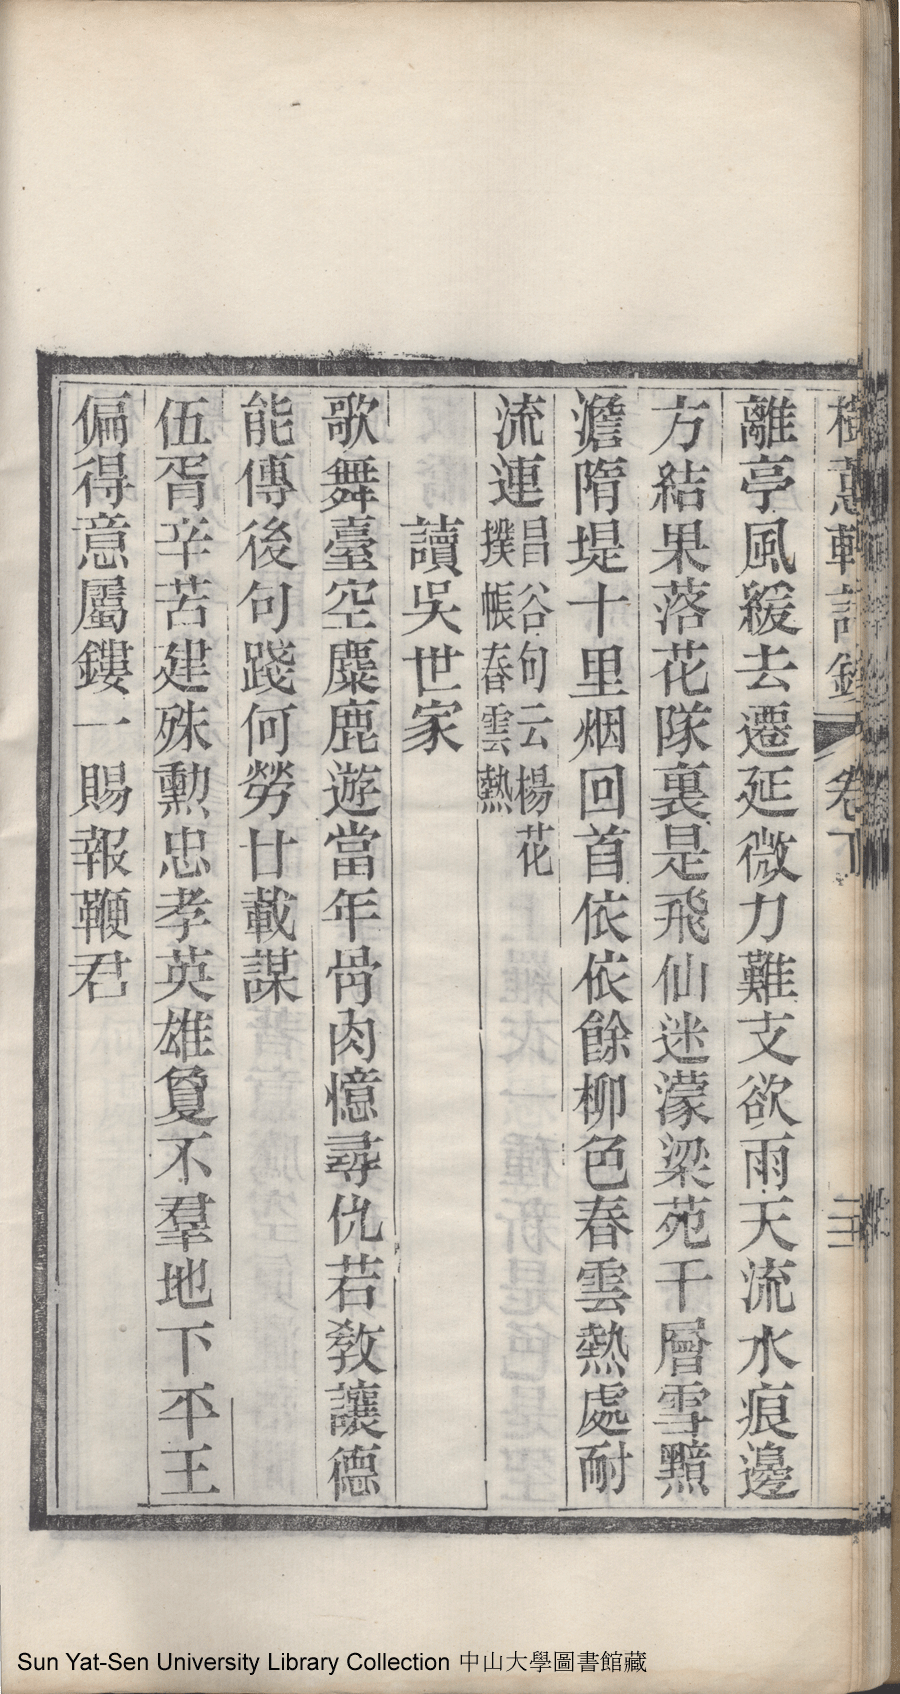 樹蕙軒詩鈔 卷下
離亭風緩去遷延微力難支欲雨天流水痕邊
方結果落花隊裏是飛仙迷濛梁苑千層雪黯
澹隋堤十里烟回首依依餘柳色春雲熱處耐
流連昌谷句云楊花
撲帳春雲熱
讀吳世家
歌舞臺空麋鹿遊當年骨肉憶尋仇若教讓德
能傳後句踐何勞廿載謀
伍胥辛苦建殊勳忠孝英雄夐不羣地下平王
偏得意屬鏤一賜報鞭君
Sun Yat-Sen University Library Collection 中山大學圖書館藏